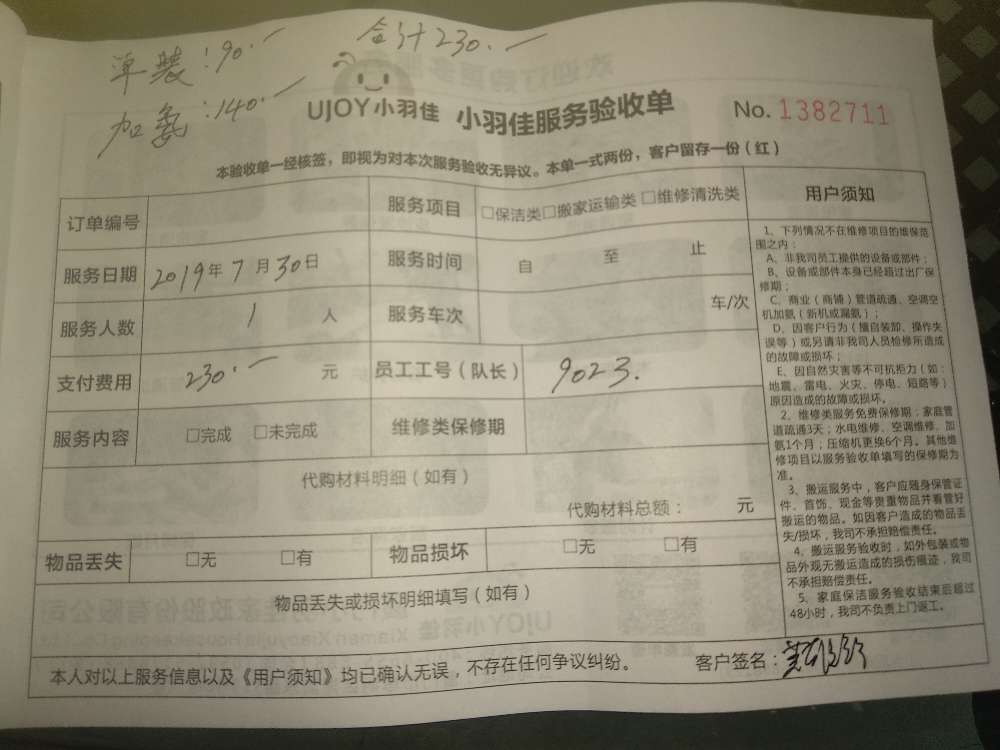 单装:90.—
合计230.—
加氨:140.—
UJOY小羽佳 小羽佳服务验收单 No. 1382711
本验收单一经核签，即视为对本次服务验收无异议。本单一式两份，客户留存一份（红）
订单编号 服务项目 □保洁类□搬家运输类 □维修清洗类
服务日期 2019年7月30日 服务时间 自 至 止
服务人数 1 人 服务车次 车/次
支付费用 230.— 元 员工工号（队长） 9023.
服务内容 □完成 □未完成 维修类保修期
代购材料明细（如有）
代购材料总额： 元
物品丢失 □无 □有 物品损坏 □无 □有
物品丢失或损坏明细填写（如有）
用户须知
1、下列情况不在维修项目的维保范
围之内：
A、非我司员工提供的设备或部件；
B、设备或部件本身已经超过出厂保
修期；
C、商业（商铺）管道疏通、空调空
机加氨（新机或漏氨）；
D、因客户行为（擅自装卸、操作失
误等）或另请非我司人员检修所造成
的故障或损坏；
E、因自然灾害等不可抗拒力（如：
地震、雷电、火灾、停电、短路等）
原因造成的故障或损坏。
2、维修类服务免费保修期：家庭管
道疏通3天；水电维修、空调维修、加
氨1个月；压缩机更换6个月。其他维
修项目以服务验收单填写的保修期为
准。
3、搬运服务中，客户应随身保管证
件、首饰、现金等贵重物品并看管好
搬运的物品。如因客户造成的物品丢
失/损坏，我司不承担赔偿责任。
4、搬运服务验收时，如外包装或物
品外观无搬运造成的损伤痕迹，我司
不承担赔偿责任。
5、家庭保洁服务验收结束后超过
48小时，我司不负责上门返工。
本人对以上服务信息以及《用户须知》均已确认无误，不存在任何争议纠纷。 客户签名：